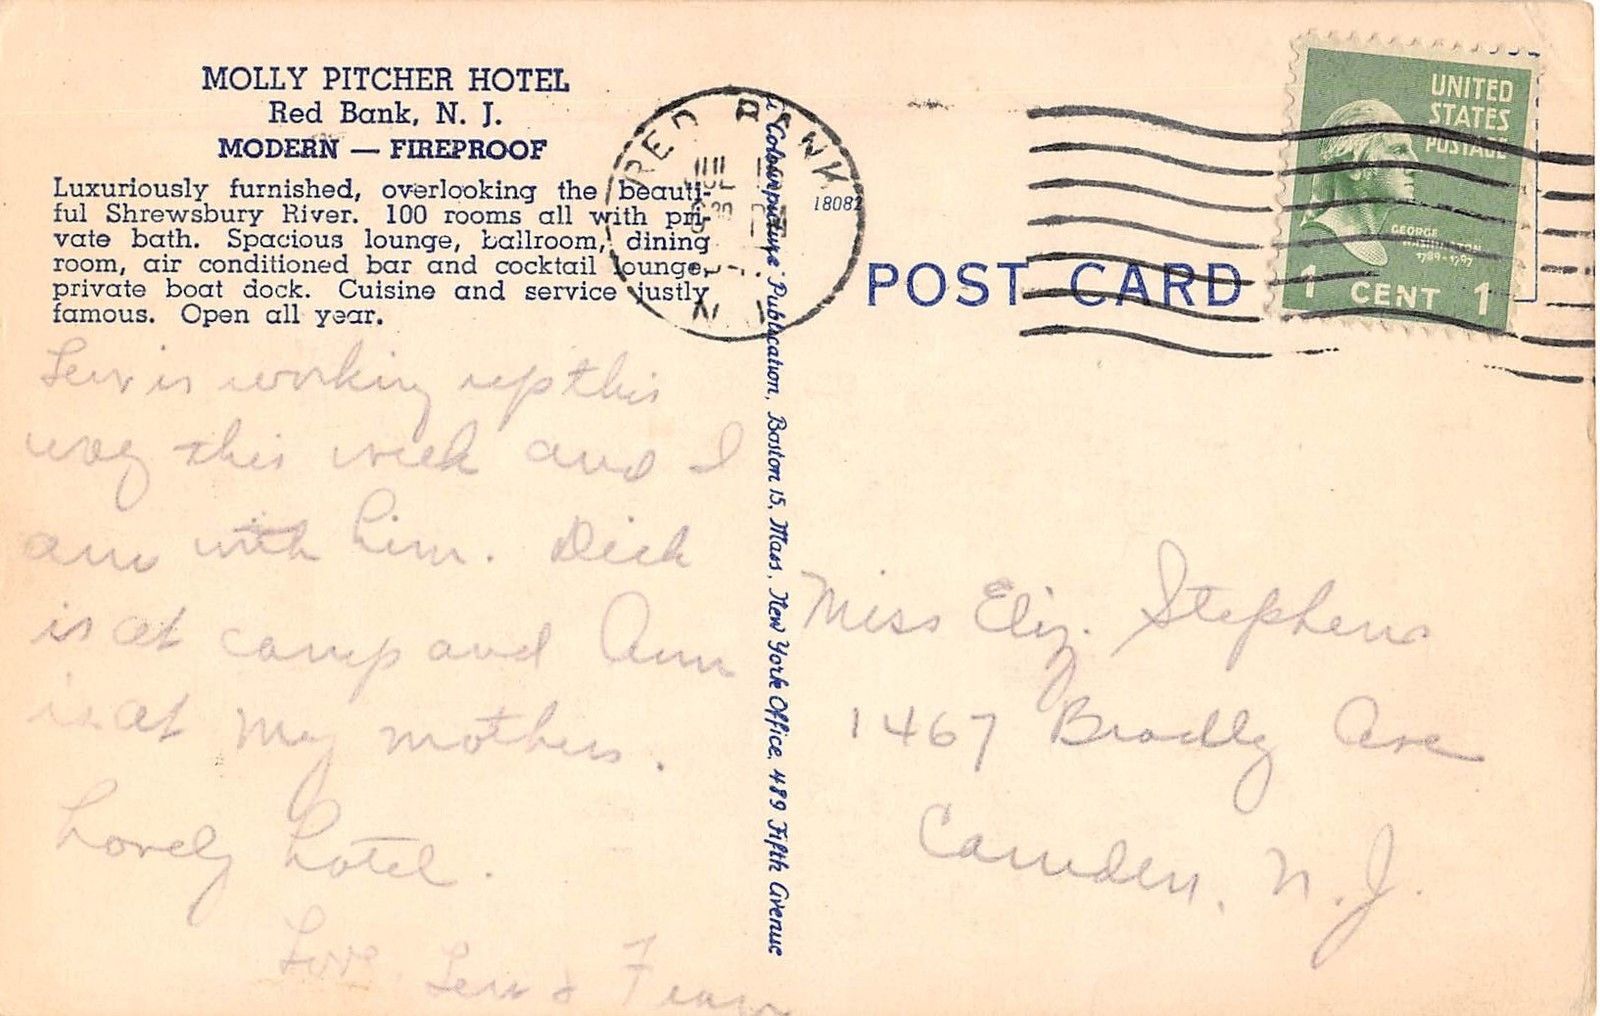 MOLLY PITCHER HOTEL
Red Bank, N. J.
MODERN — FIREPROOF
Luxuriously furnished, overlooking the beauti-
ful Shrewsbury River. 100 rooms all with pri-
vate bath. Spacious lounge, ballroom, dining
room, air conditioned bar and cocktail lounge,
private boat dock. Cuisine and service justly
famous. Open all year.
Lew is working up this
way this week and I
am with him. Dick
is at camp and Ann
is at my mothers.
Lovely hotel.
Love, Lew & Fran
"Colourpicture" Publication, Boston 15, Mass., New York Office, 489 Fifth Avenue
RED BANK
JUL
N
18082
POST CARD
UNITED
STATES
POSTAGE
GEORGE
WASHINGTON
1789-1797
1 CENT 1
Miss Eliz. Stephens
1467 Bradly Ave
Camden, N. J.